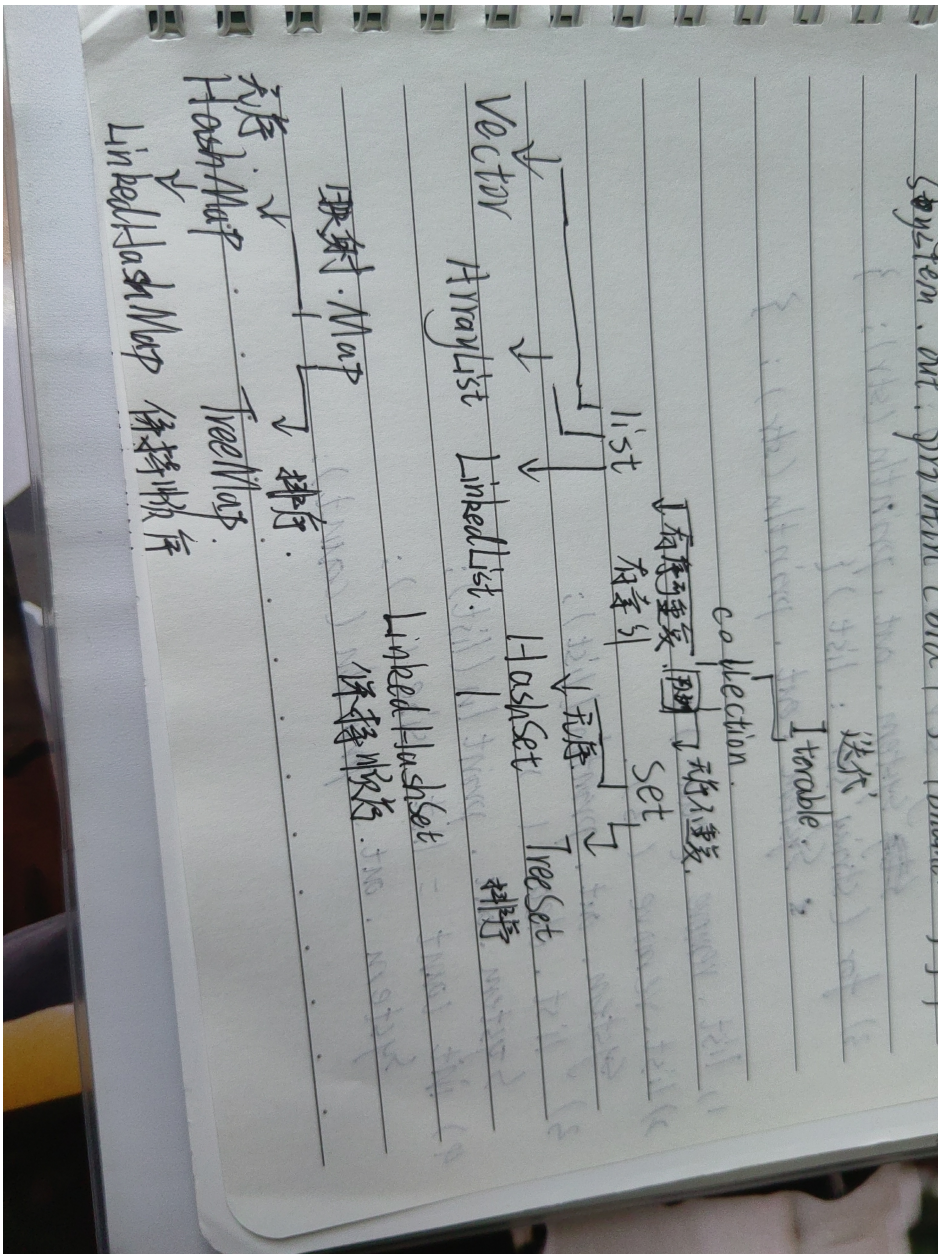 System.out.println(
迭代
Iterable
collection.
有序可重复
无序不重复
有索引
list
Set
无序
Vector
ArrayList LinkedList.
HashSet TreeSet
排序
LinkedHashSet
保持顺序.
映射.Map
排序.
无序
HashMap. TreeMap.
LinkedHashMap 保持顺序